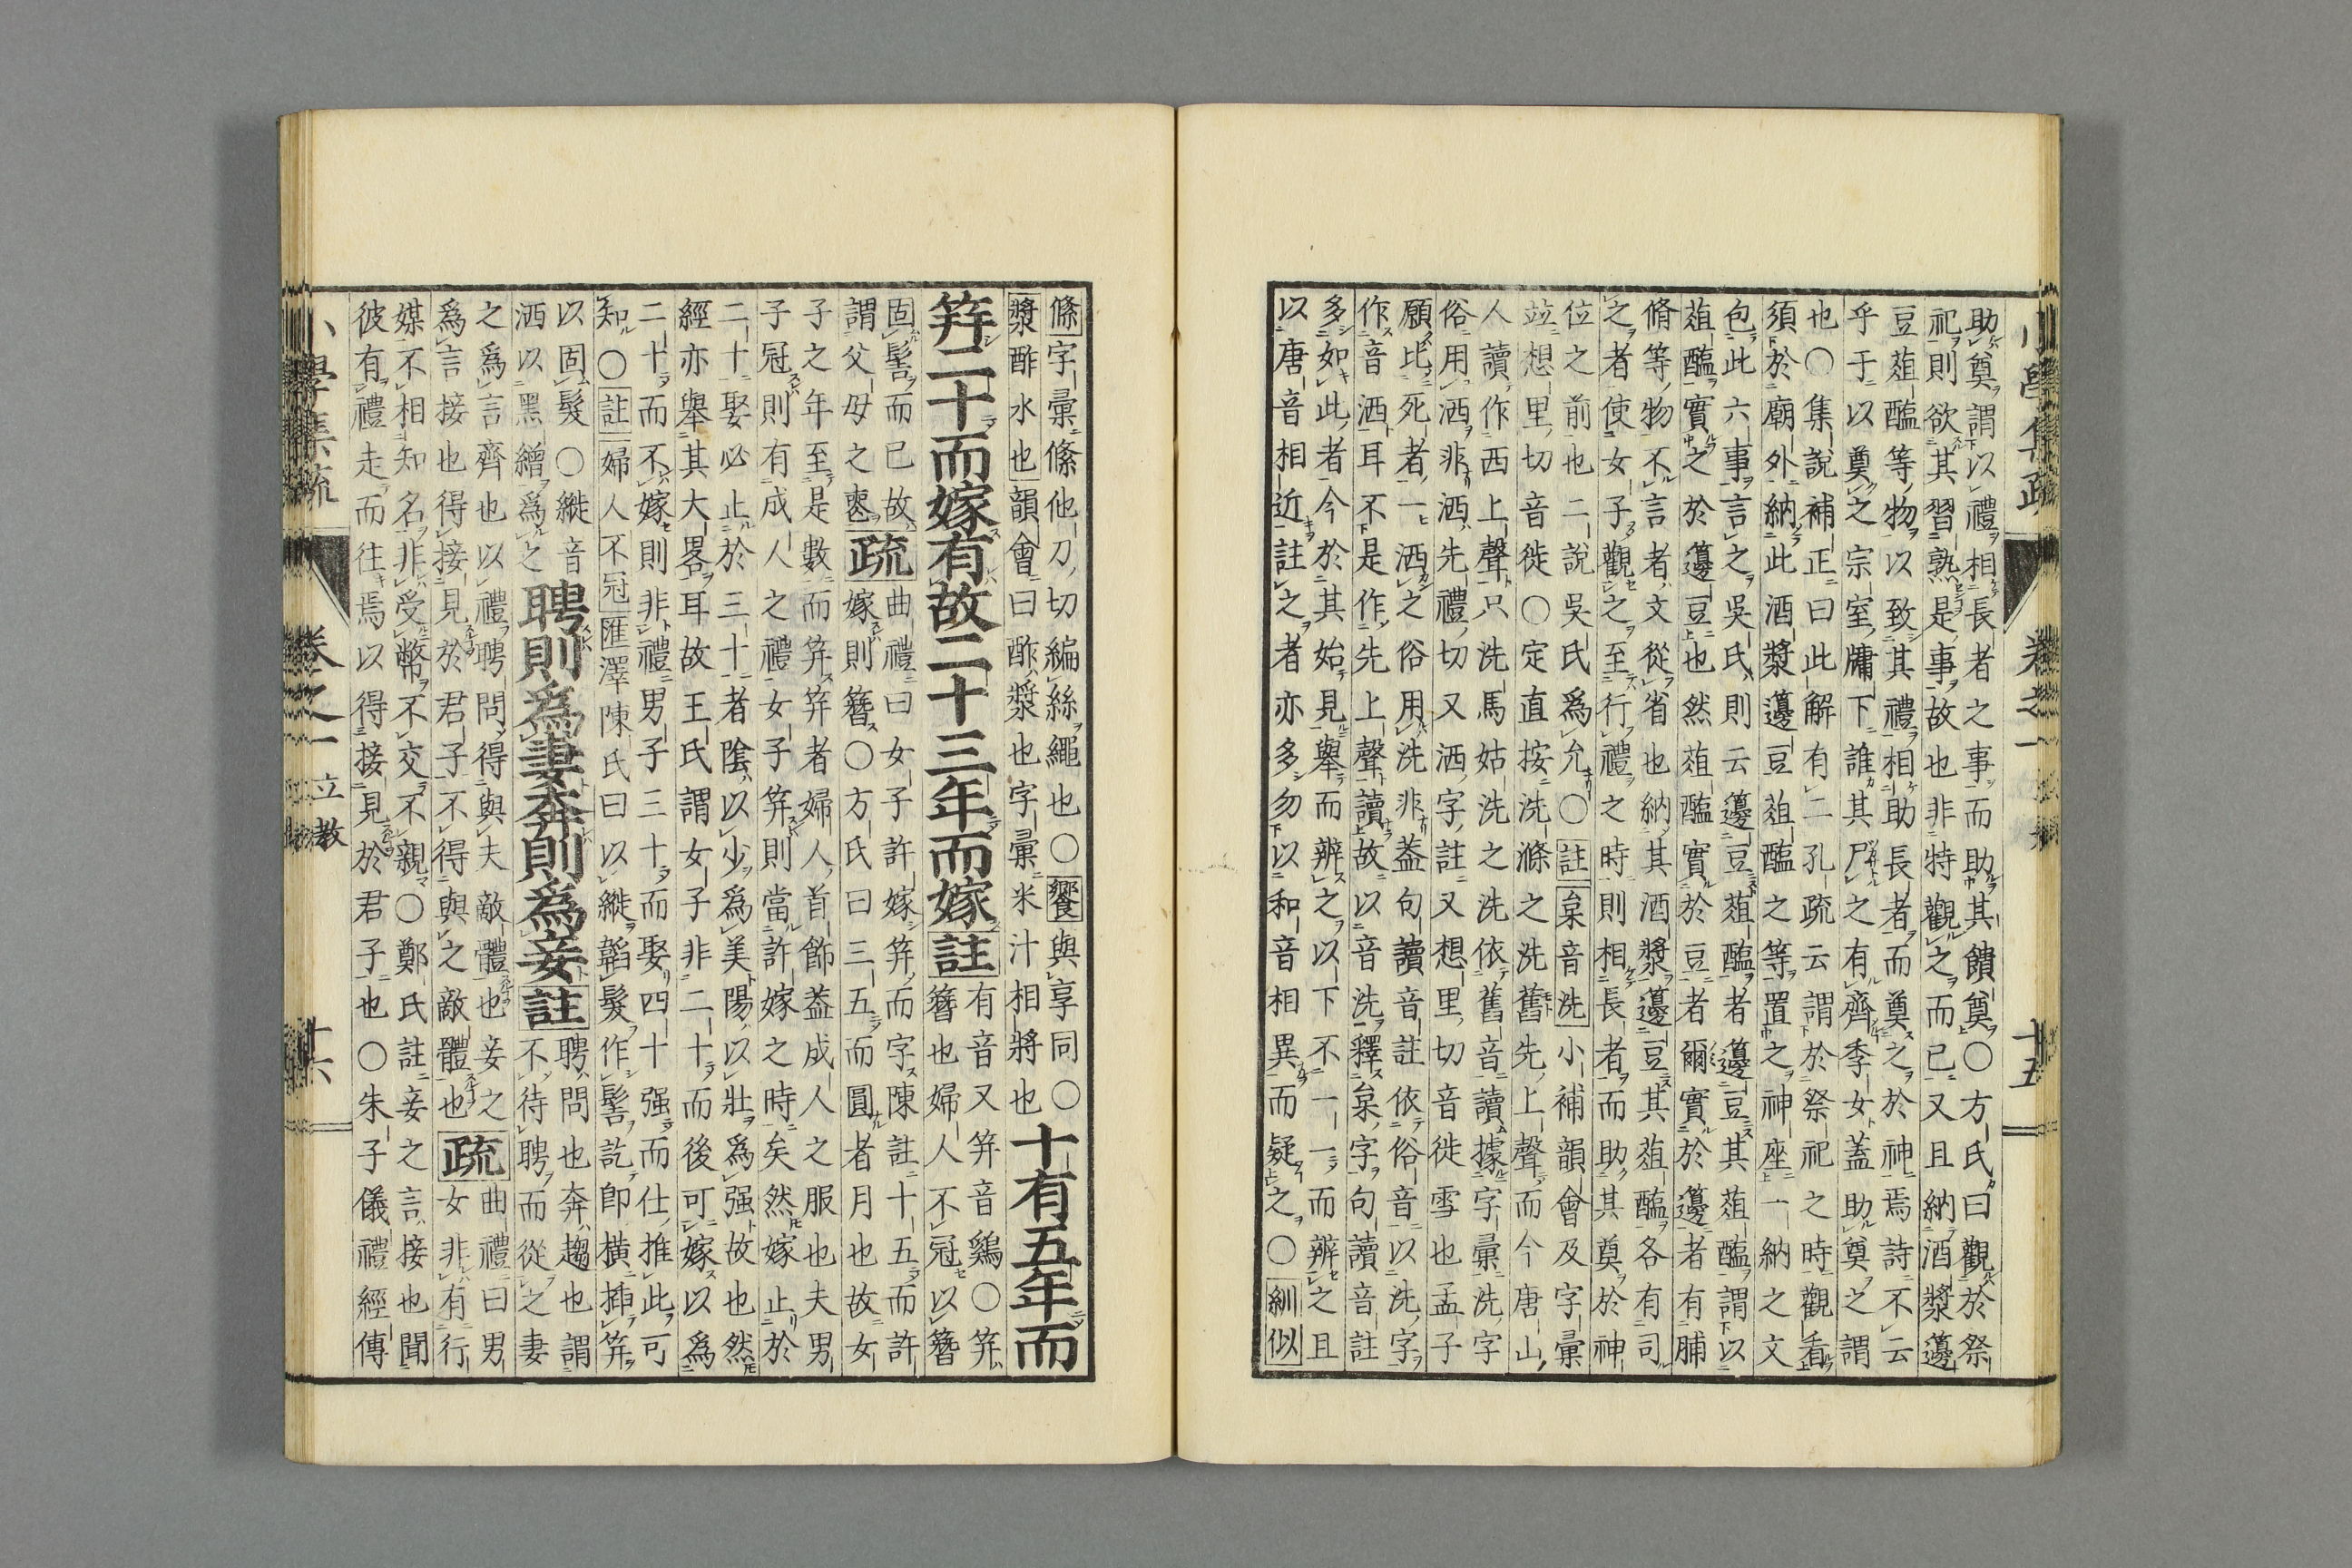 助奠謂以禮相長者之事而助其饋奠〇方氏曰觀於祭
祀則欲其習熟是事故也非特觀之而已又且納酒漿籩
豆葅醢等物以致其禮相助長者而奠之於神焉詩不云
乎于以奠之宗室牖下誰其尸之有齊季女蓋助奠之謂
也〇集說補正曰此解有二孔疏云謂於祭祀之時觀看
須於廟外納此酒漿籩豆葅醢之等置之神座一納之文
包此六事言之吳氏則云籩豆葅醢者籩豆其葅醢謂以
葅醢實之於籩豆也然葅醢實於豆者爾實於籩者有脯
脩等物不言者文從省也納其酒漿籩豆其葅醢各有司
之者使女子觀之至行禮之時則相長者而助其奠於神
位之前也二說吳氏爲允〇註枲音洗小補韻會及字彙
竝想里切音徙〇定直按洗滌之洗舊先上聲而今唐山
人讀作西上聲只洗馬姑洗之洗依舊音讀據字彙洗字
俗用洒非洒先禮切又洒字註又想里切音徙雪也孟子
願比死者一洒之俗用洗非葢句讀音註依俗音以洗字
作音洒耳不是作先上聲讀故以音洗釋枲字句讀音註
多如此者今於其始見舉而辨之以下不一一而辨之且
以唐音相近註之者亦多勿以和音相異而疑之〇紃似
小學集疏 卷之一 十五
絛字彙絛他刀切編絲繩也〇饗與享同〇十有五年而
漿酢水也韻會曰酢漿也字彙米汁相將也
笄二十而嫁有故二十三年而嫁註有音又笄音鷄〇笄
簪也婦人不冠以簪
固髻而已故疏曲禮曰女子許嫁笄而字陳註十五而許
謂父母之喪嫁則簪〇方氏曰三五而圓者月也故女
子之年至是數而笄笄者婦人首飾葢成人之服也夫男
子冠則有成人之禮女子笄則當許嫁之時矣然嫁止於
二十娶必止於三十者陰以少爲美陽以壯爲强故也然
經亦舉其大畧耳故王氏謂女子非二十而後可嫁以爲
二十而不嫁則非禮男子三十而娶四十强而仕推此可
知〇註婦人不冠匯澤陳氏曰以縰韜髮作髻訖卽橫揷笄
以固髮〇縰音聘則爲妻奔則爲妾註聘問也奔趨也謂
洒以黑繒爲之不待聘而從之妻
之爲言齊也以禮聘問得與夫敵體也妾之疏曲禮曰男
爲言接也得接見於君子不得與之敵體也女非有行
媒不相知名非受幣不交不親〇鄭氏註妾之言接也聞
彼有禮走而往焉以得接見於君子也〇朱子儀禮經傳
小學集疏 卷之一 立教 十六